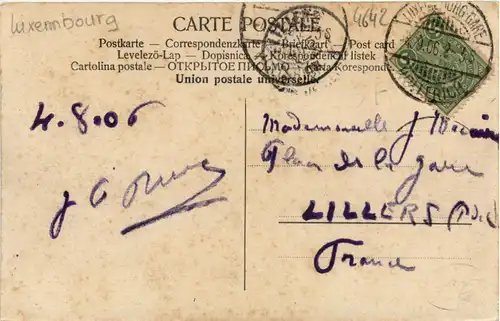 Luxembourg
4642
CARTE POSTALE
Postkarte — Correspondenzkarte — Briefkaart — Post card
Levelező-Lap — Dopisnica — Korespondenční lístek
Cartolina postale — ОТКРЫТОЕ ПИСЬМО — Karta Korespond
Union postale universelle.
LUXEMBOURG-GARE
4.8.06
Mademoiselle J
4.8.06
Place de la gare
LILLERS
France